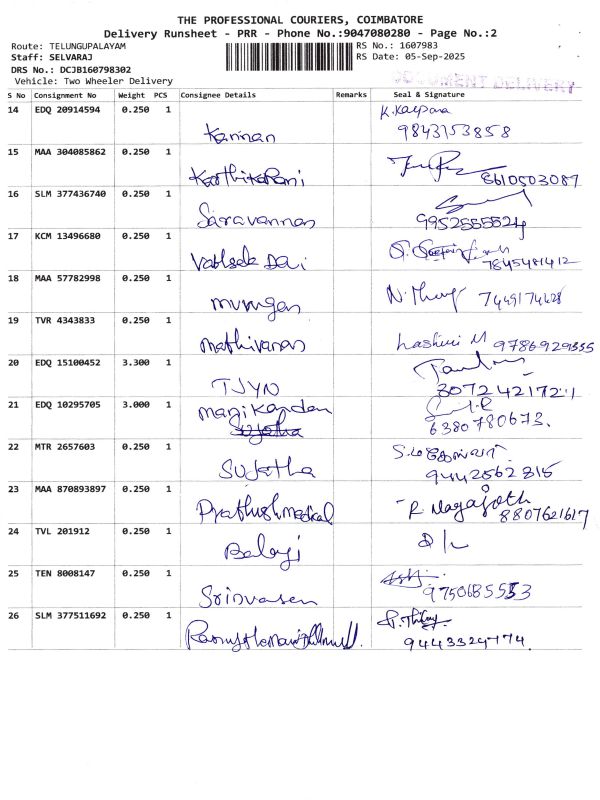 THE PROFESSIONAL COURIERS, COIMBATORE
Delivery Runsheet - PRR - Phone No.:9047080280 - Page No.:2
Route: TELUNGUPALAYAM RS No.: 1607983
Staff: SELVARAJ RS Date: 05-Sep-2025
DRS No.: DCJB160798302
Vehicle: Two Wheeler Delivery
DOCUMENT DELIVERY
S No Consignment No Weight PCS Consignee Details Remarks Seal & Signature
14 EDQ 20914594 0.250 1 K. Kalpana
Kannan 9843153858
15 MAA 304085862 0.250 1
Karthika Rani 8610503087
16 SLM 377436740 0.250 1
Saravannan 9952555524
17 KCM 13496680 0.250 1
7845481412
18 MAA 57782998 0.250 1
murugan 7449174628
19 TVR 4343833 0.250 1
mathivanan hashini M 9786929355
20 EDQ 15100452 3.300 1
TJYN 30724217211
21 EDQ 10295705 3.000 1
manikandan
Sujatha 6380780673.
22 MTR 2657603 0.250 1
Sujatha 9442562815
23 MAA 870893897 0.250 1
Prathush medical R Nagajoth
8807621617
24 TVL 201912 0.250 1
Balaji
25 TEN 8008147 0.250 1
Srinvasen 9750685553
26 SLM 377511692 0.250 1
9443329774